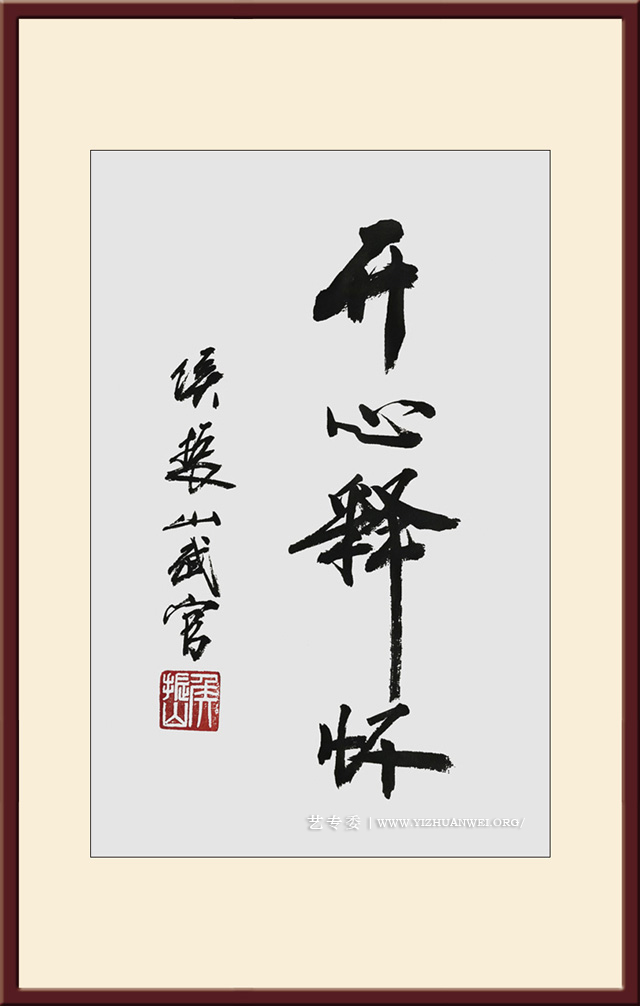 开心释怀
侯振山武官
侯振山
艺专委 | WWW.YIZHUANWEI.ORG/